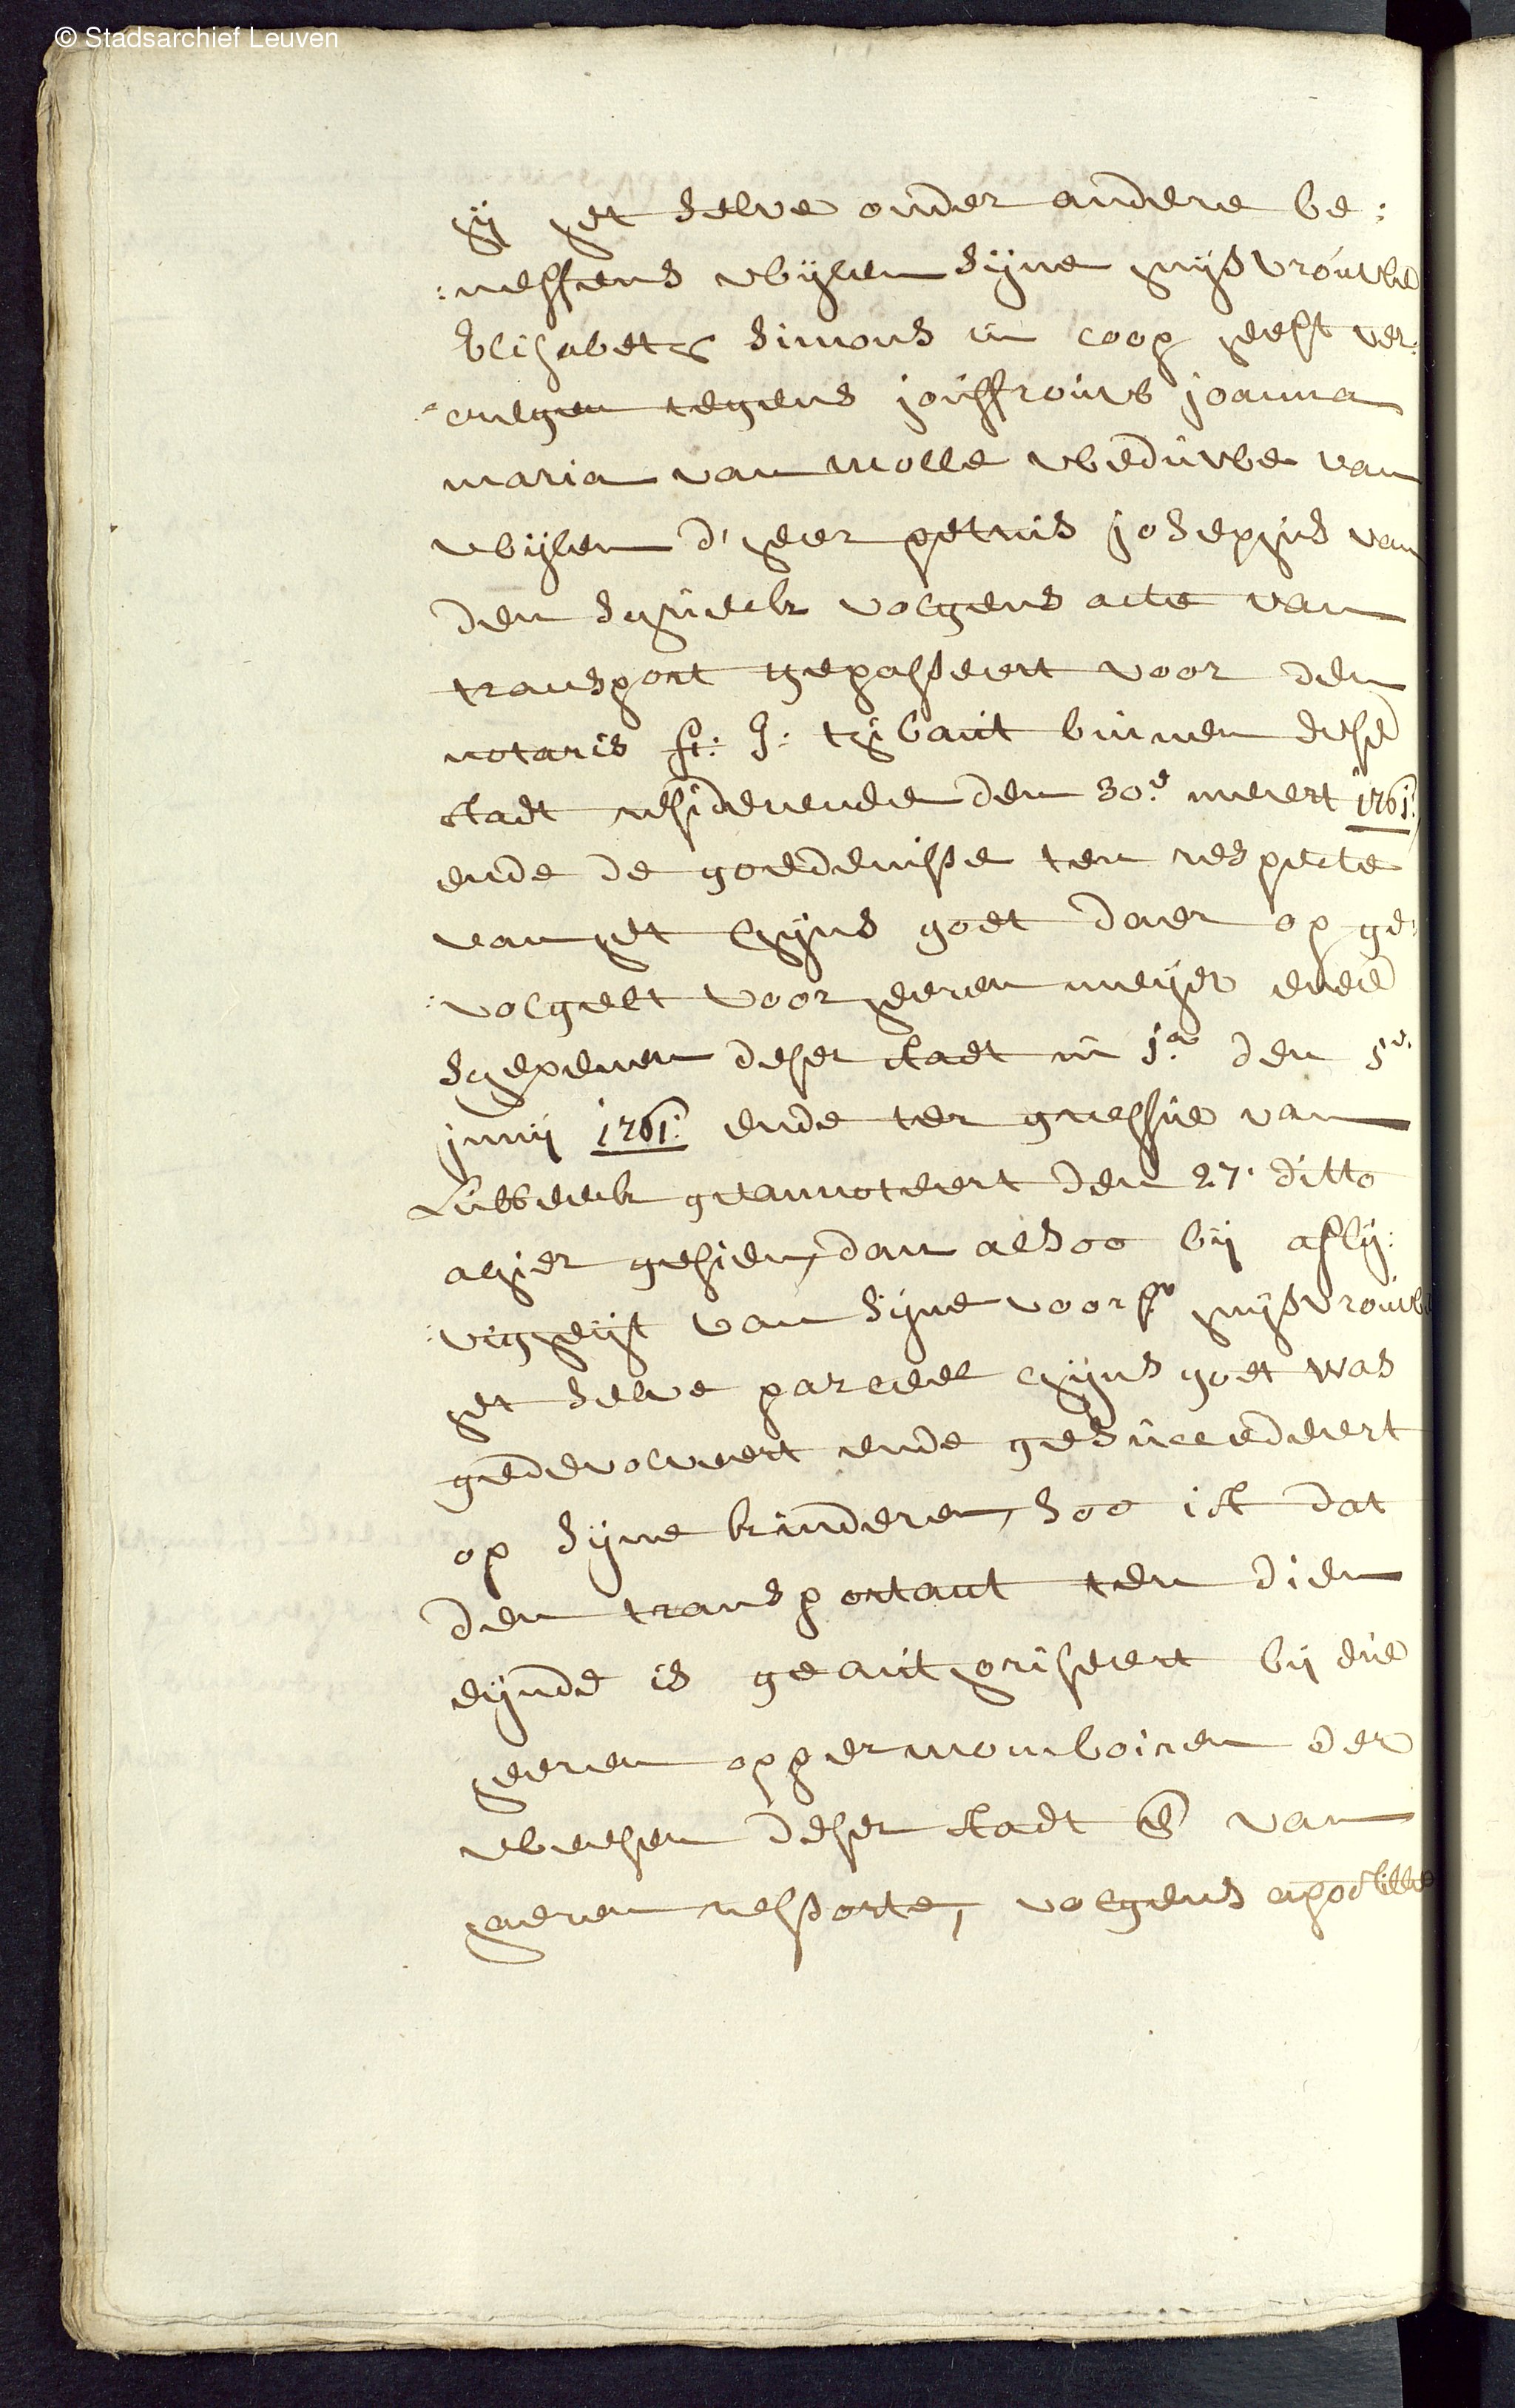 © Stadsarchief Leuven
hij het selve onder andere be:
:neffens wijlen sijne huijsvrouwe
Elisabeth Simons in coop heeft ver:
:cregen tegens jouffrouw joanna
maria van molle weduwe van
wijlen d'heer petrus josephus van
den schrieck volgens acte van
transport gepasseert voor den
notaris fr: J: thibaut binnen dese
stadt residerende den 30.e meert 1761.
ende de goedenisse ten respecte
van het chijns goet daer op ge:
:volght voor heeren meijer ende
schepenen deser stadt in j.a den 5.e
junij 1761. ende ter greffie van
Lubbeeck geannoteert den 27. ditto
alhier gesien, dan alsoo bij aflij:
:vigheijt van sijne voors.e huijsvrouwe
het selve parceel chijns goet was
gedevolveert ende gesuccedeert
op sijne kinderen, soo ist dat
den transportant ten dien
eijnde is geauthoriseert bij die
heeren oppermomboiren der
weesen deser stadt en van
haeren ressorte, volgens apostille